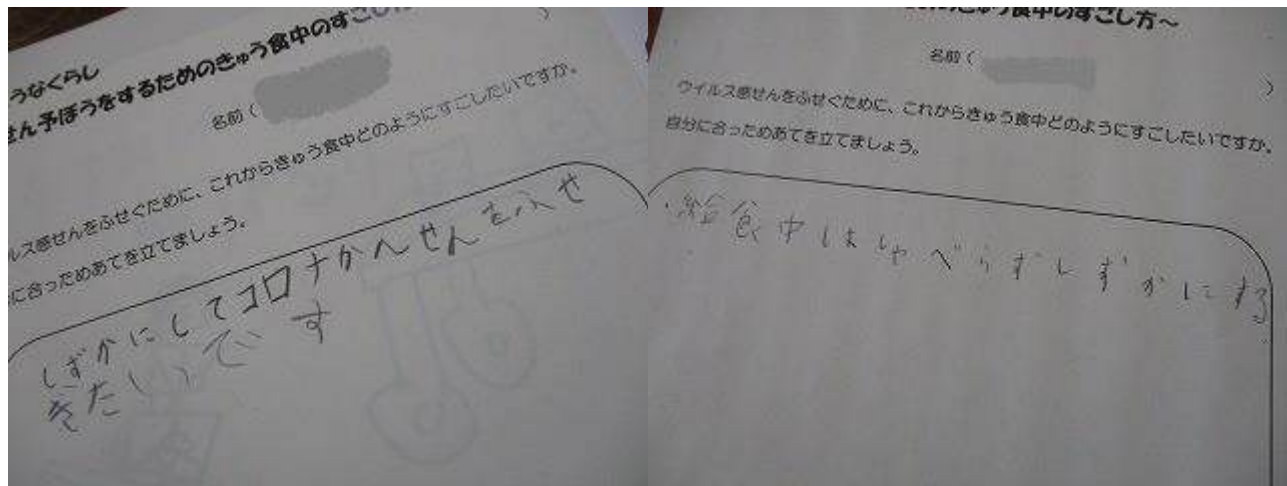 うなくらし
せん予ぼうをするためのきゅう食中のすごし
名前(
)
ルス感せんをふせぐために、これからきゅう食中どのようにすごしたいですか。
に合っためあてを立てましょう。
しずかにしてコロナかんせんをふせ
きたいです
きゅう食中のすごし方～
名前(
)
ウイルス感せんをふせぐために、これからきゅう食中どのようにすごしたいですか。
自分に合っためあてを立てましょう。
・給食中はしゃべらずしずかにする